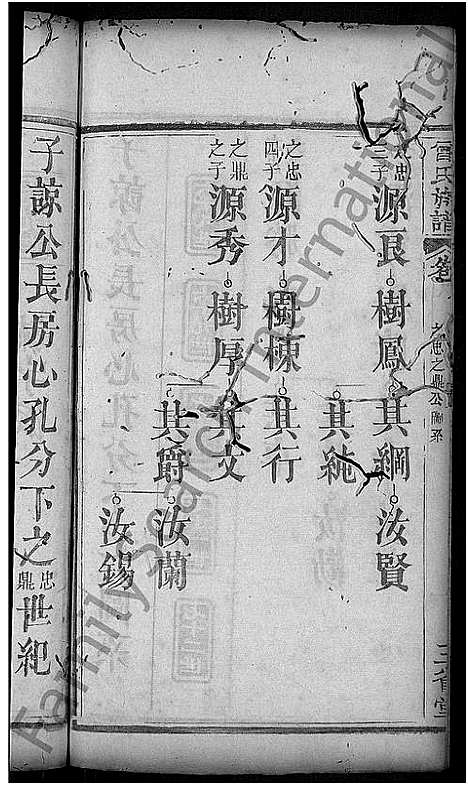 曾氏族譜
卷
之忠之鼎公圖系
三省堂
之忠三子 源良 樹鳳 其綱 汝賢
其純
之忠四子 源才 樹棟 其行
之鼎之子 源秀 樹厚 其文
其爵 汝蘭
汝錫
子諒公長房心孔分下之忠鼎世紀
FamilySearch International